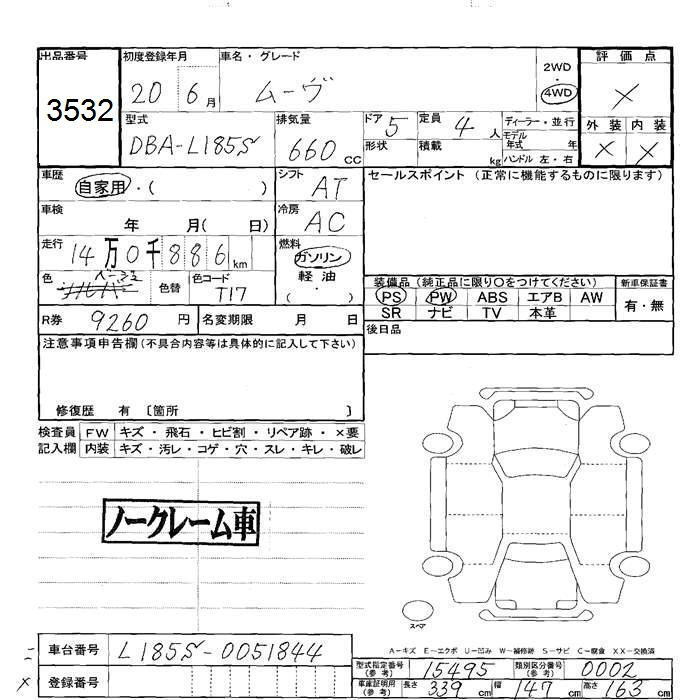 出品番号 初度登録年月 車名・グレード 評価点
3532 20 6月 ムーヴ 2WD・4WD ×
型式 排気量 ドア 定員 ディーラー・並行 外装 内装
DBA-L185S 660cc 5 4人 モデル年式 年 × ×
形状 積載 kg ハンドル 左・右
車歴 自家用・( ) シフト AT セールスポイント (正常に機能するものに限ります)
車検 年 月( 日) 冷房 AC
走行 14万0千886km 燃料 ガソリン
色 ベージュ 色替 色コード T17 軽油 ( ・ )
装備品 (純正品に限り○をつけてください) 新車保証書
PS PW ABS エアB AW 有・無
SR ナビ TV 本革
R券 9260円 名変期限 月 日 後日品
注意事項申告欄 (不具合内容等は具体的に記入して下さい)
修復歴 有 〔箇所 〕
検査員 FW キズ・飛石・ヒビ割・リペア跡・×要
記入欄 内装 キズ・汚レ・コゲ・穴・スレ・キレ・破レ
ノークレーム車
スペア
A-キズ E-エクボ U-凹み W-補修跡 S-サビ C-腐食 XX-交換済
車台番号 L185S-0051844
型式指定番号 (参考) 15495 類別区分番号 (参考) 0002
登録番号
車庫証明用 (参考) 長さ 339cm 幅 147cm 高さ 163cm